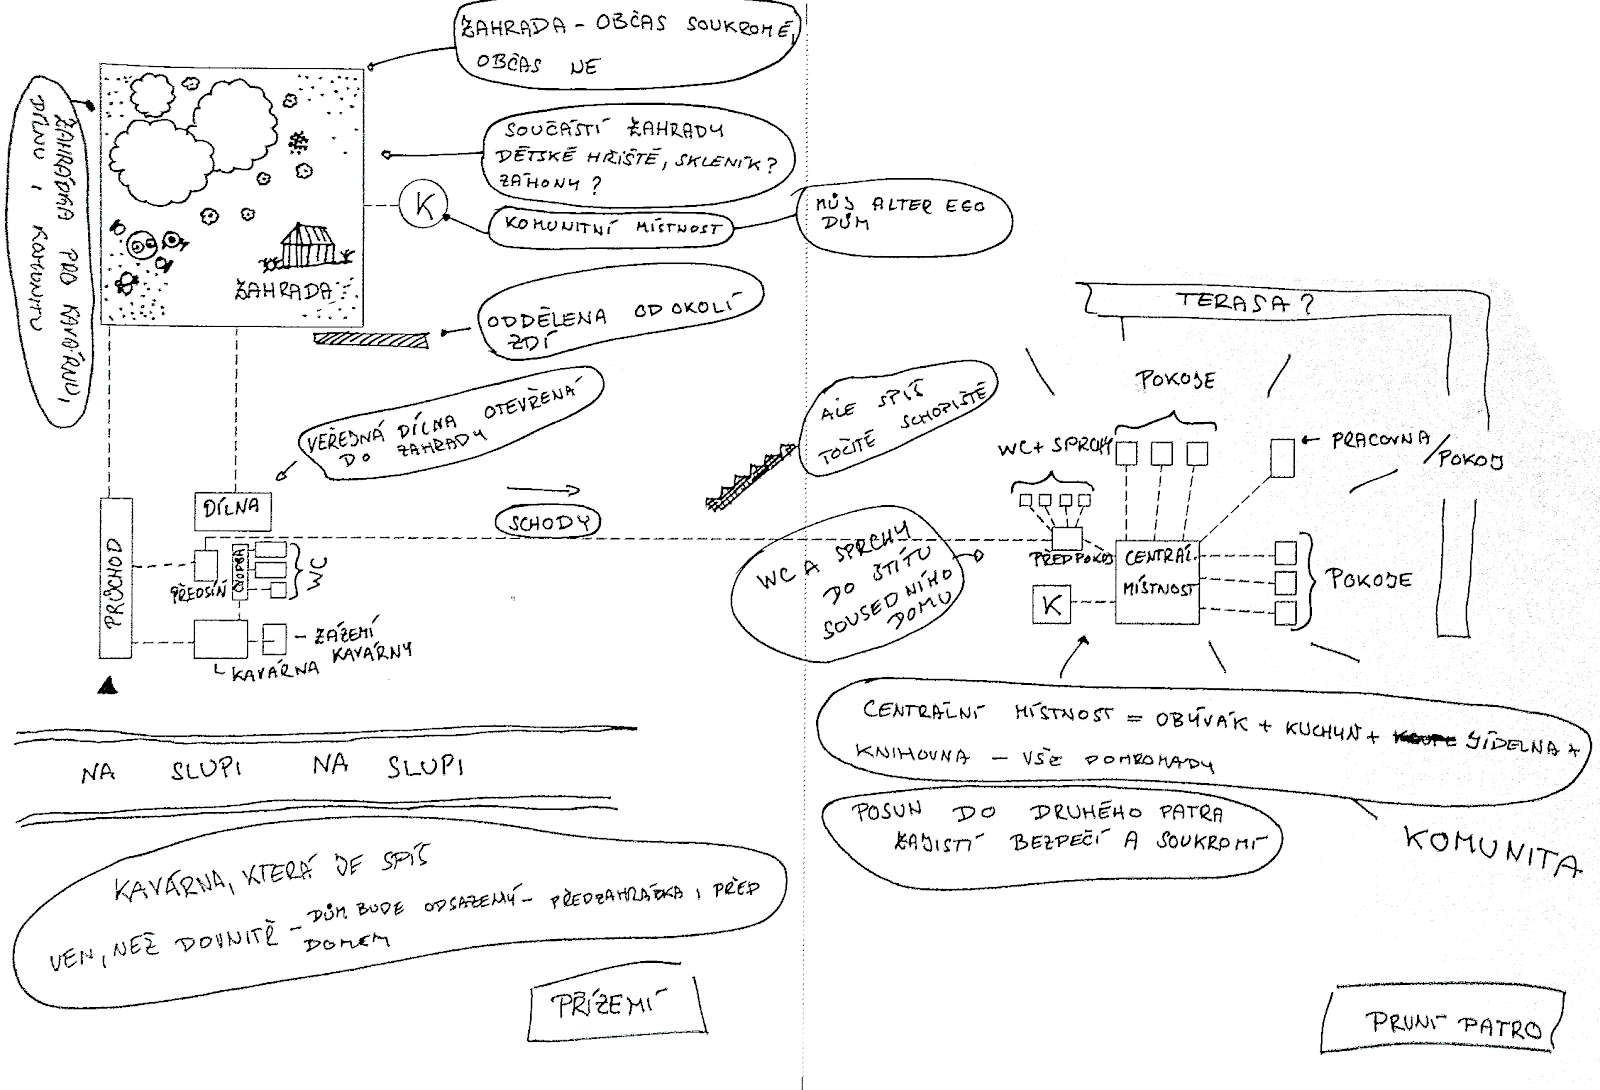 ZAHRADA - OBČAS SOUKROMÉ,
OBČAS NE
ZAHRÁDKA PRO KAVÁRNU,
DÍLNU I KOMUNITU
SOUČÁSTÍ ZAHRADY
DĚTSKÉ HŘIŠTĚ, SKLENÍK?
ZÁHONY?
K
KOMUNITNÍ MÍSTNOST
MŮJ ALTER EGO
DŮM
ZAHRADA
ODDĚLENA OD OKOLÍ
ZDÍ
VEŘEJNÁ DÍLNA OTEVŘENÁ
DO ZAHRADY
DÍLNA
PRŮCHOD
PŘEDSÍŇ
CHODBA
WC
ZÁZEMÍ
KAVÁRNY
KAVÁRNA
SCHODY
ALE SPÍŠ
TOČITÉ SCHODIŠTĚ
WC A SPRCHY
DO ŠTÍTU
SOUSEDNÍHO
DOMU
TERASA?
POKOJE
WC + SPRCHY
PRACOVNA / POKOJ
PŘEDPOKOJ
CENTRÁL.
MÍSTNOST
K
POKOJE
NA SLUPI NA SLUPI
CENTRÁLNÍ MÍSTNOST = OBÝVÁK + KUCHYŇ + JÍDELNA +
KNIHOVNA - VŠE DOHROMADY
POSUN DO DRUHÉHO PATRA
ZAJISTÍ BEZPEČÍ A SOUKROMÍ
KOMUNITA
KAVÁRNA, KTERÁ JE SPÍŠ
VEN, NEŽ DOVNITŘ - DŮM BUDE ODSAZENÝ - PŘEDZAHRÁDKA I PŘED
DOMEM
PŘÍZEMÍ
PRVNÍ PATRO